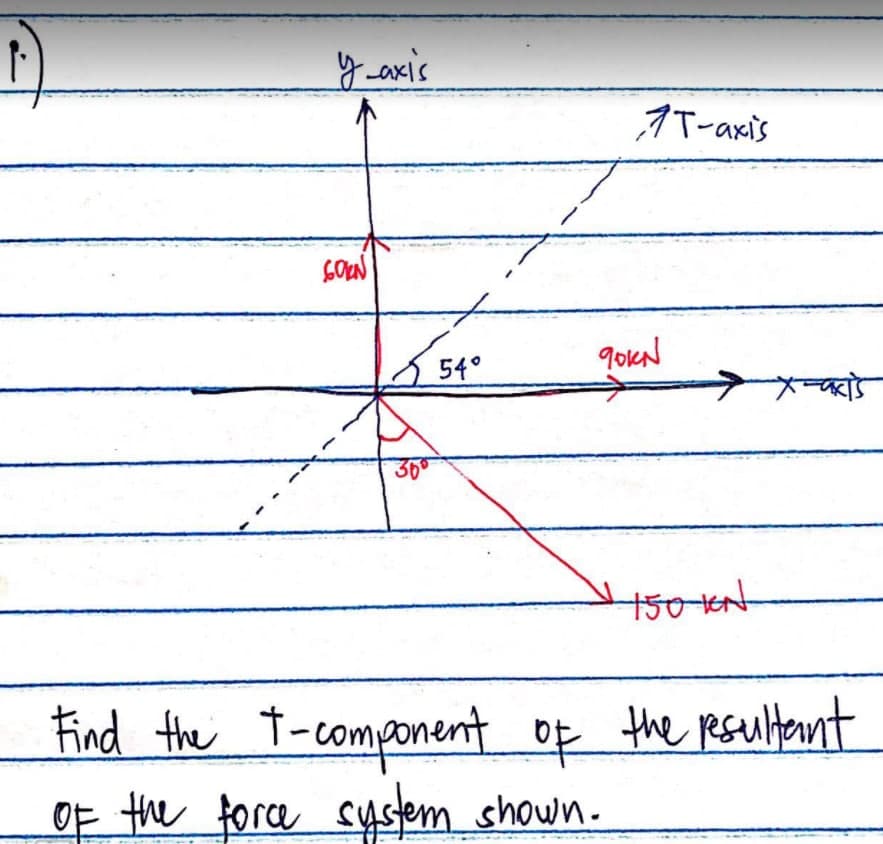 1.)
y-axis
T-axis
60KN
54°
90KN
x-axis
30°
150 KN
Find the T-component OF the resultant
OF the force system shown.